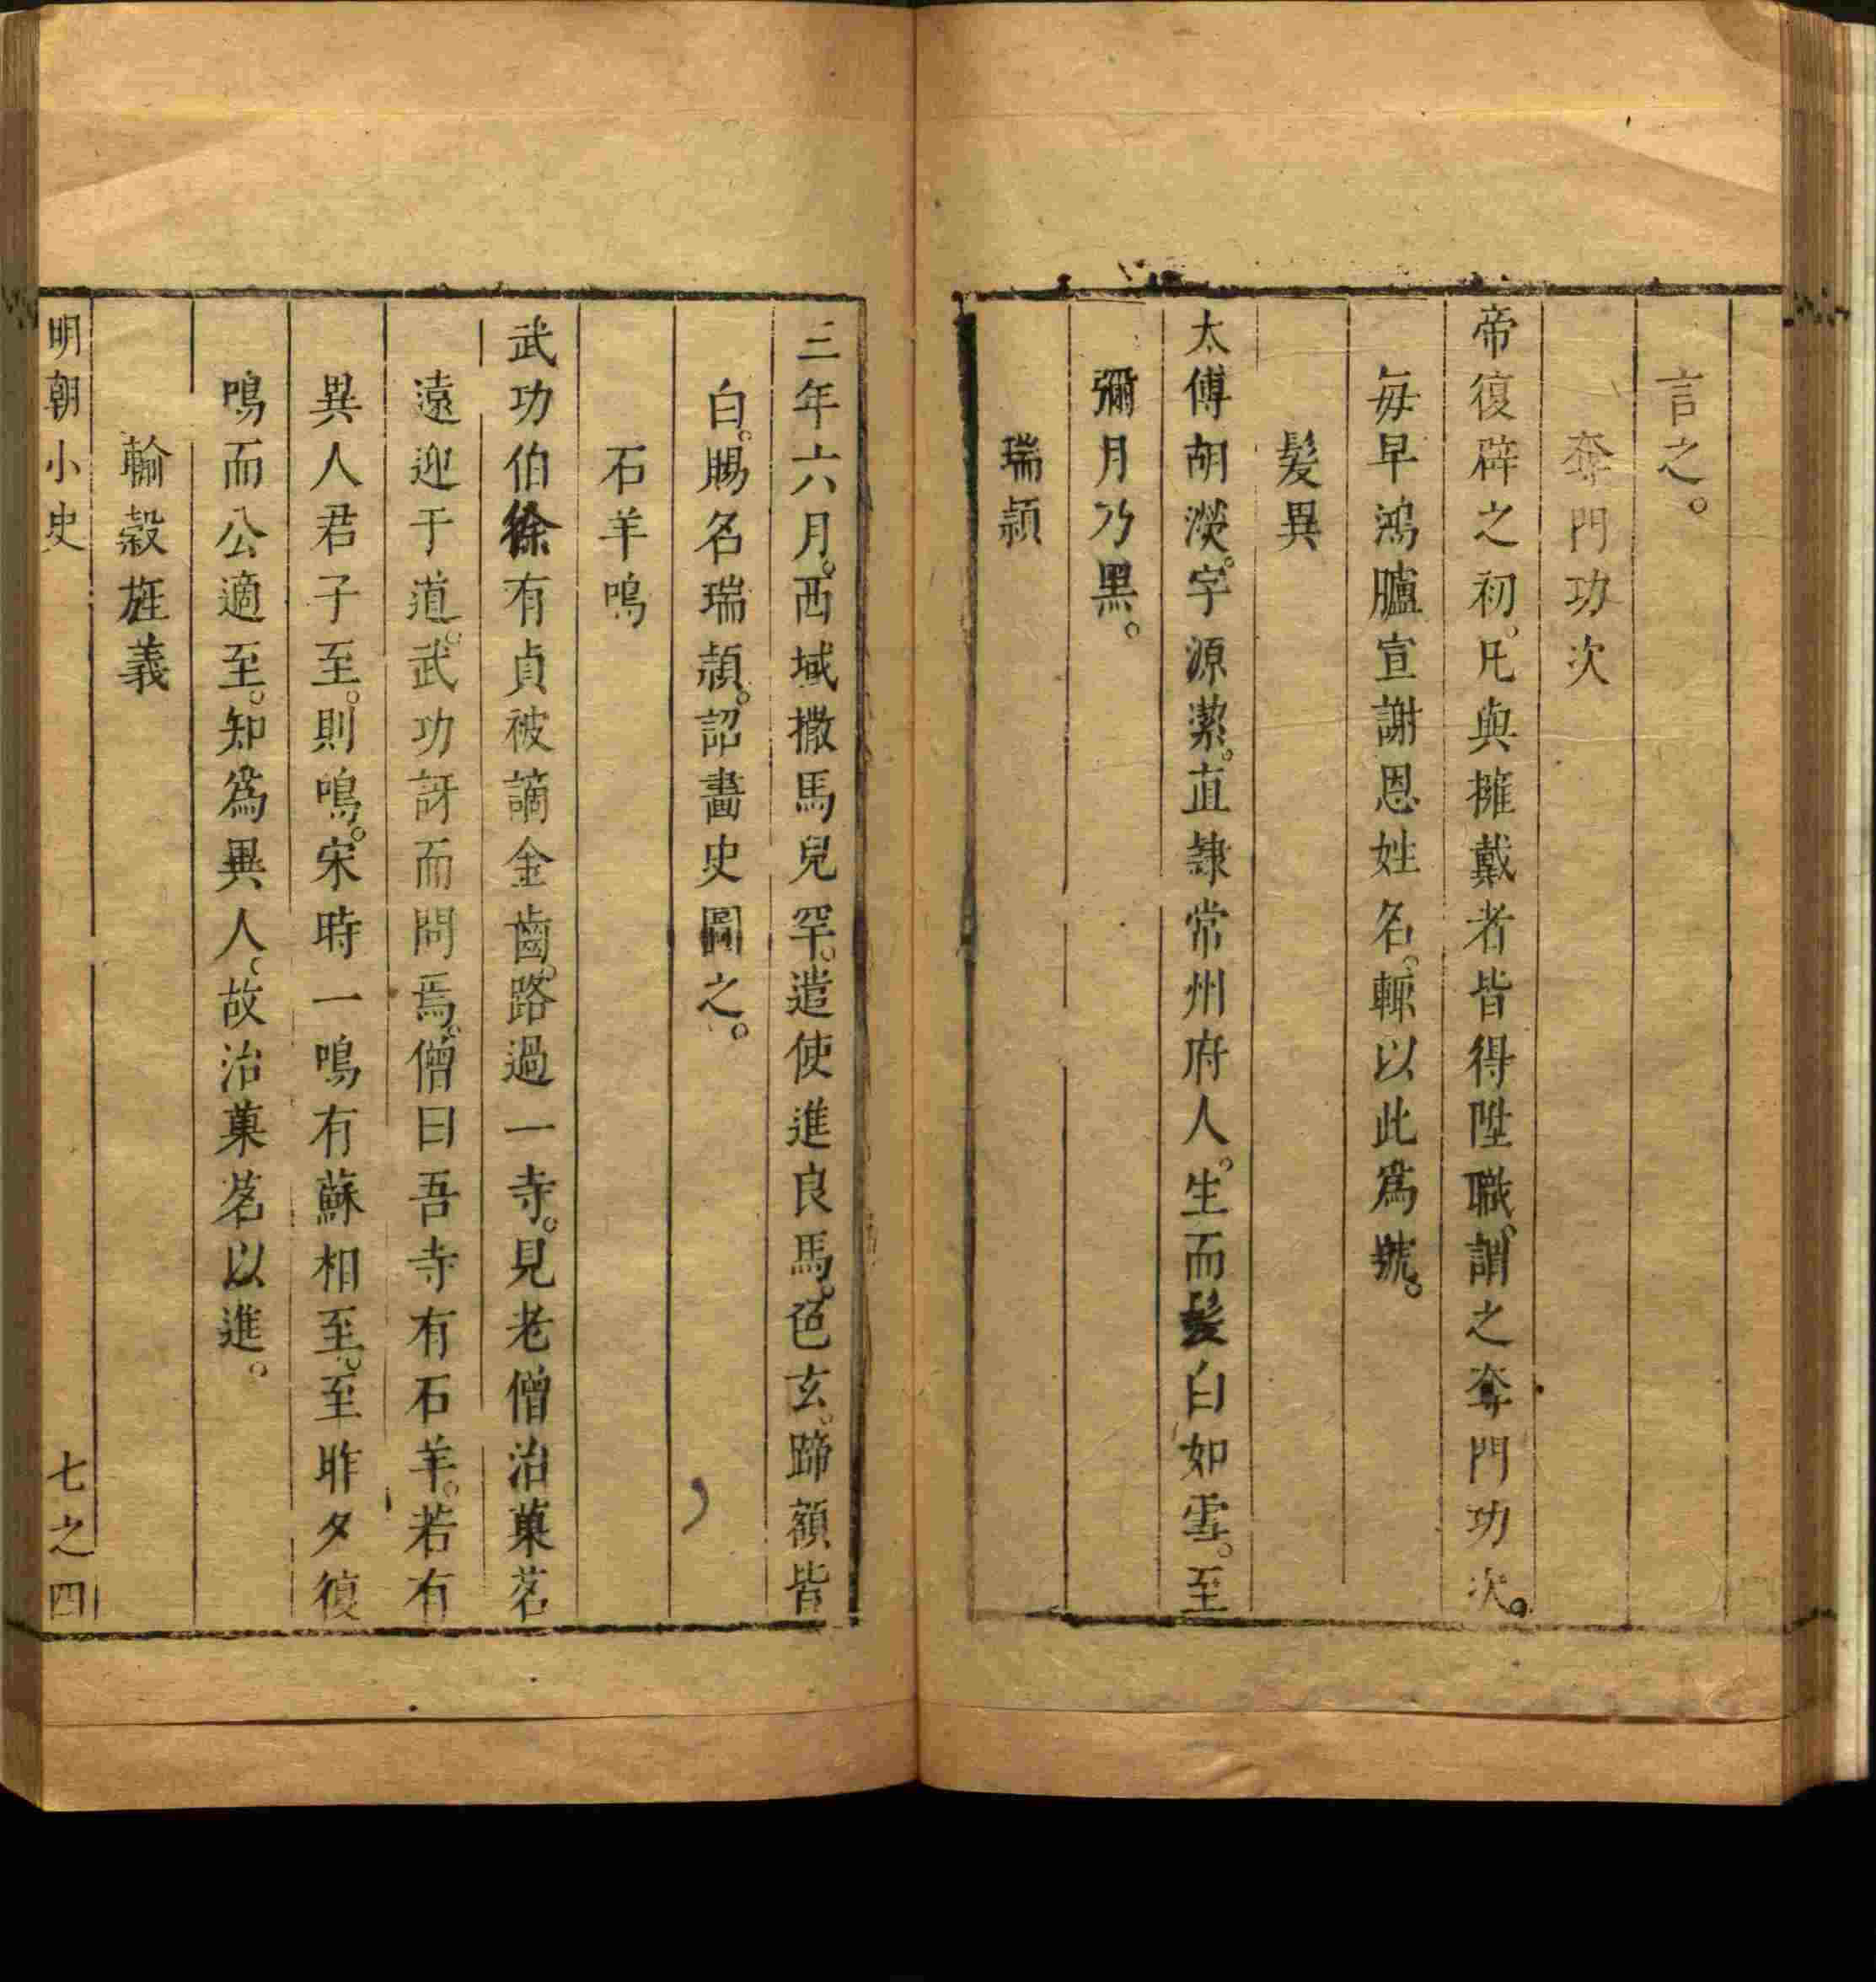 言之。
奪門功次
帝復辟之初。凡與擁戴者皆得陞職。謂之奪門功次。
毎早鴻臚宣謝恩姓名。輙以此爲號。
髪異
太傅胡濙。字源潔。直隷常州府人。生而髪白如雪。至
彌月乃黑。
瑞䫙
三年六月。西域撒馬兒罕。遣使進良馬。色玄。蹄額皆
白。賜名瑞䫙。詔畫史圖之。
石羊鳴
武功伯徐有貞被謫金齒。路過一寺。見老僧治菓茗
遠迎于道。武功訝而問焉。僧曰吾寺有石羊。若有
異人君子至。則鳴。宋時一鳴有蘇相至。至昨夕復
鳴而公適至。知爲異人。故治菓茗以進。
輸穀旌義
明朝小史
七之四